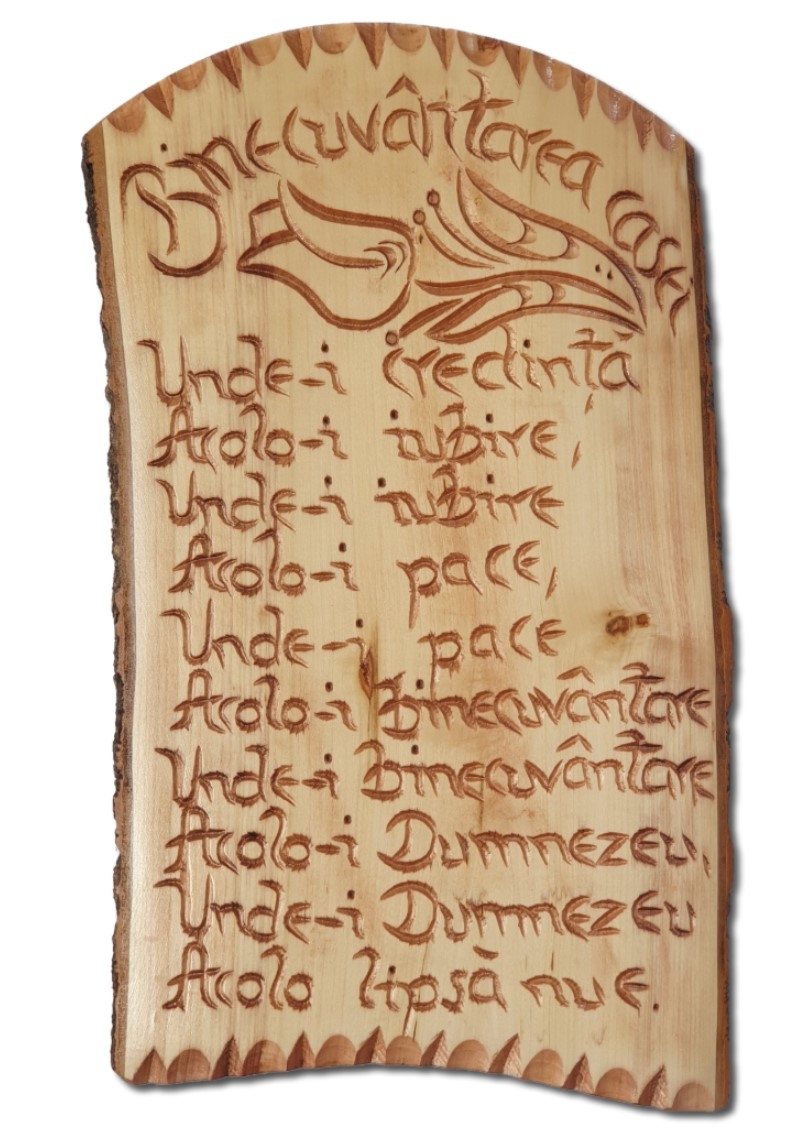 Binecuvântarea casei
Unde-i credință
Acolo-i iubire,
Unde-i iubire
Acolo-i pace,
Unde-i pace
Acolo-i Binecuvântare
Unde-i Binecuvântare
Acolo-i Dumnezeu,
Unde-i Dumnezeu
Acolo lipsă nu e.